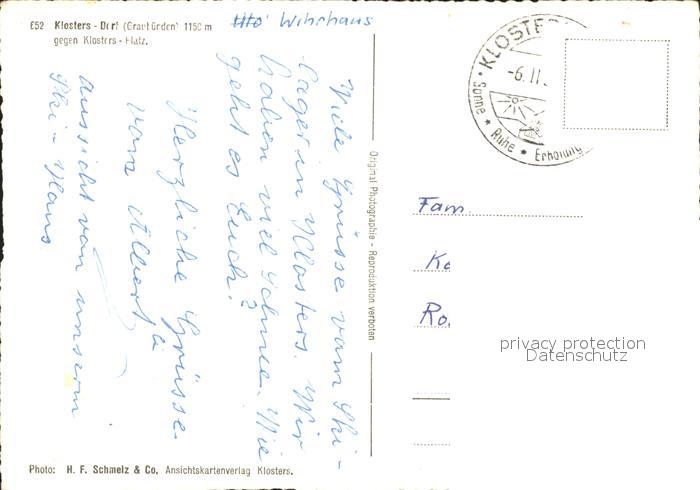 E52 Klosters - Dorf (Graubünden) 1150 m
gegen Klosters - Platz.
Wihrhaus
Viele Grüsse vom Ski-
lager in Klosters. Wir
haben viel Schnee. Wie
geht es Euch?
Herzliche Grüsse
von Albert
Aussicht von unserm
Ski-Haus
Original Photographie - Reproduktion verboten
KLOSTE
-6.II.
Sonne * Ruhe * Erholung
Fam.
Ke
Ro.
privacy protection
Datenschutz
Photo: H. F. Schmelz & Co, Ansichtskartenverlag Klosters.